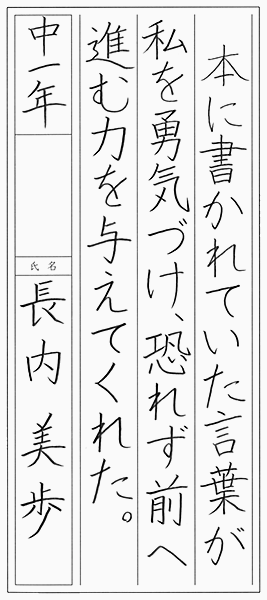 本に書かれていた言葉が
私を勇気づけ、恐れず前へ
進む力を与えてくれた。
中一年
氏名
長内美歩